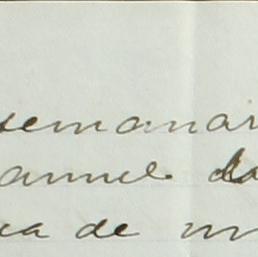 semanar
annel da
ca de m